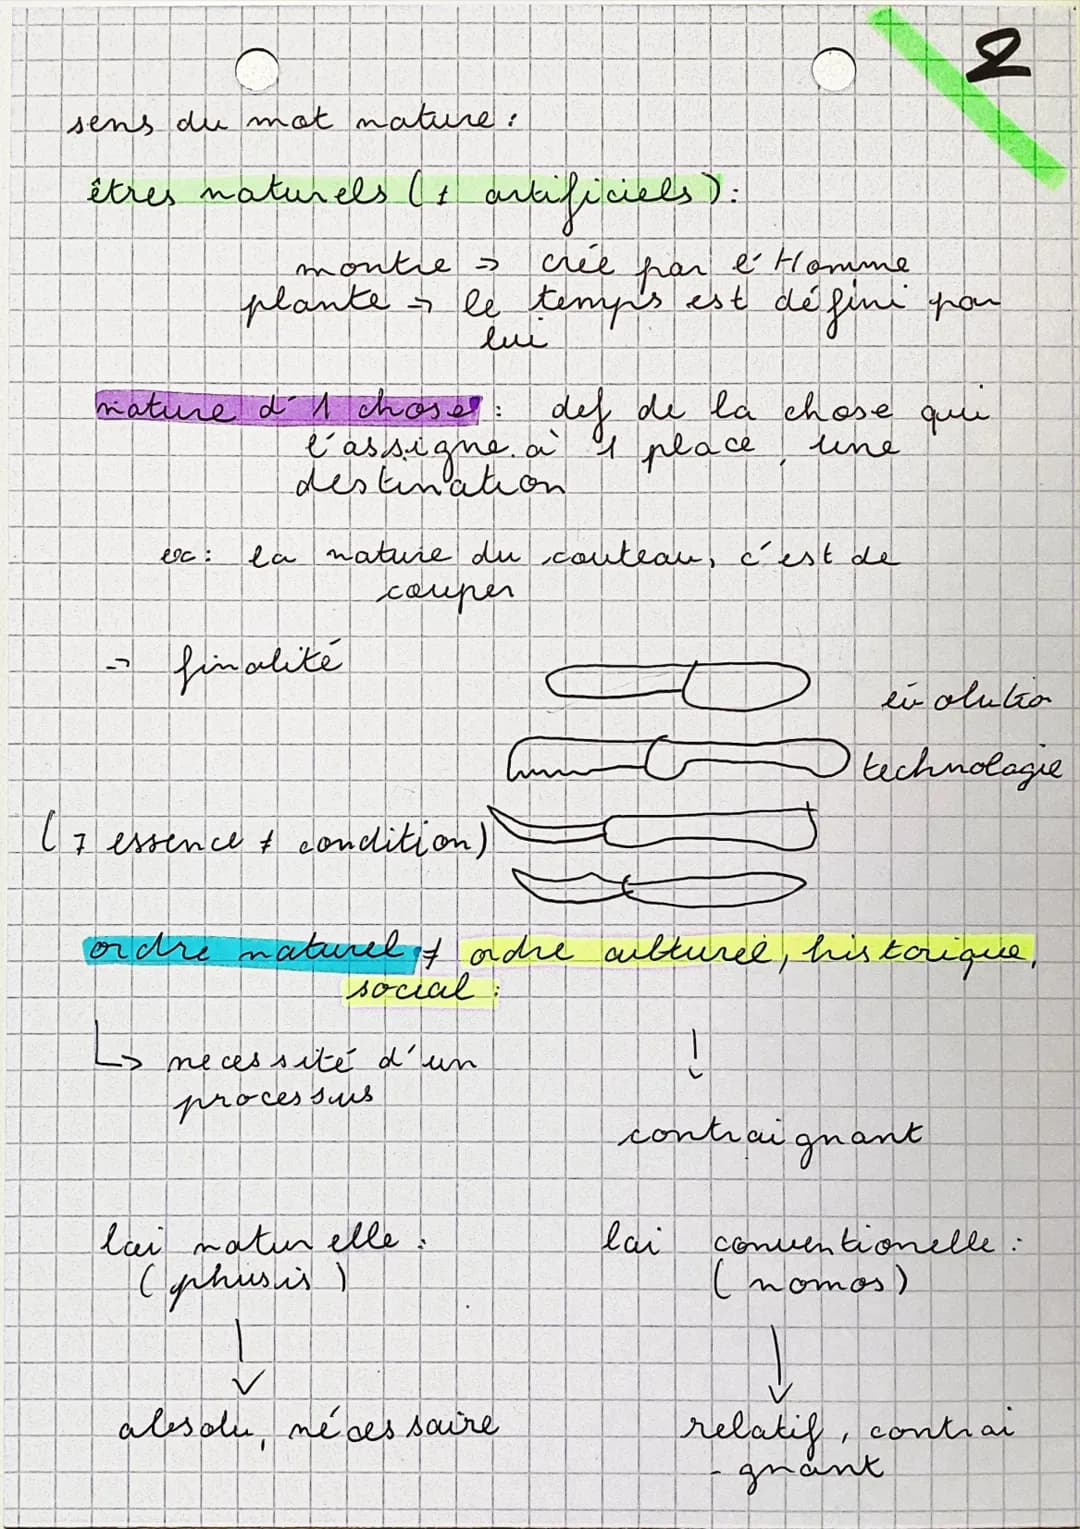 2
sens du mot nature :
êtres naturels (≠ artificiels) :
montre => créé par l'Homme
plante => le temps est défini par
lui
nature d'1 chose : def de la chose qui
l'assigne à 1 place, une
destination
ex : la nature du couteau, c'est de
couper
=> finalité
évolutio
technologie
( essence ≠ condition)
ordre naturel ≠ ordre culturel, historique,
social :
↳ necessité d'un
processus
↓
contraignant
loi naturelle : loi conventionelle :
(phusis) (nomos)
↓ ↓
absolu, nécessaire relatif, contrai
- gnant